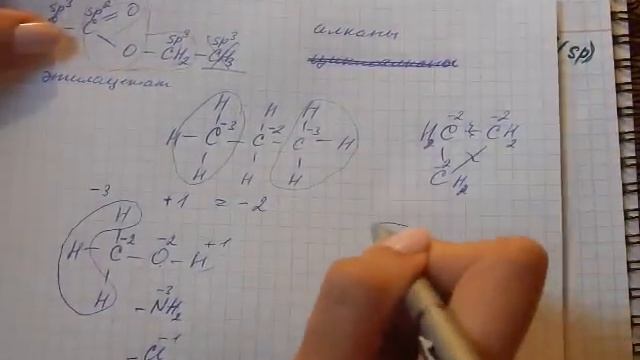 sp³ sp² O
C
O — CH₂ — CH₃
sp³ sp³
этилацетат
алканы
(sp)
H H H
H — C⁻³ — C⁻² — C⁻³ — H
H H H
H₂C⁻² — C⁻²H₂
C⁻²H₂
-3 +1 = -2
H
H — C⁻² — O⁻² — H⁺¹
H
- N⁻³H₂
- Cl⁻¹